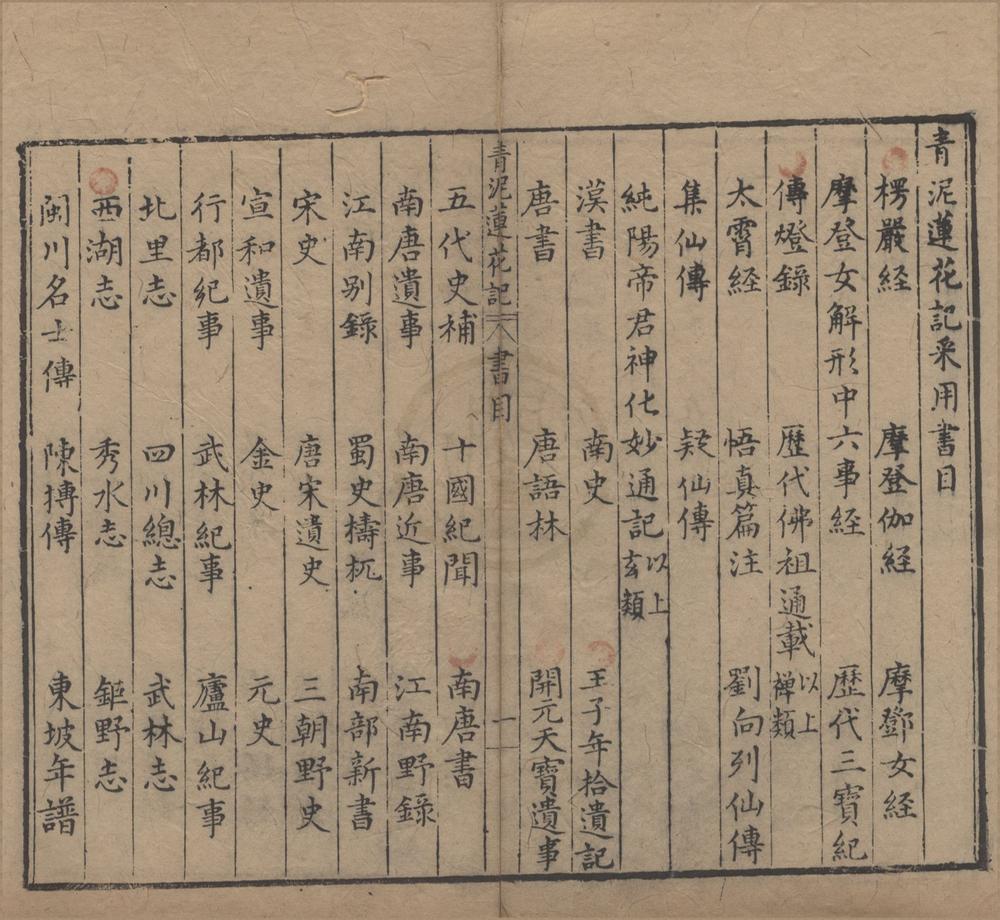 青泥蓮花記采用書目
楞嚴経 摩登伽経 摩鄧女経
摩登女解形中六事経 歷代三寶紀
傳燈錄 歷代佛祖通載以上禅類
太霄経 悟真篇注 劉向列仙傳
集仙傳 疑仙傳
純陽帝君神化妙通記以上玄類
漢書 南史 王子年拾遺記
唐書 唐語林 開元天寶遺事
青泥蓮花記 書目 一
五代史補 十國紀聞 南唐書
南唐遺事 南唐近事 江南野錄
江南别錄 蜀史檮杌 南部新書
宋史 唐宋遺史 三朝野史
宣和遺事 金史 元史
行都紀事 武林紀事 廬山紀事
北里志 四川總志 武林志
西湖志 秀水志 鉅野志
閩川名士傳 陳摶傳 東坡年譜